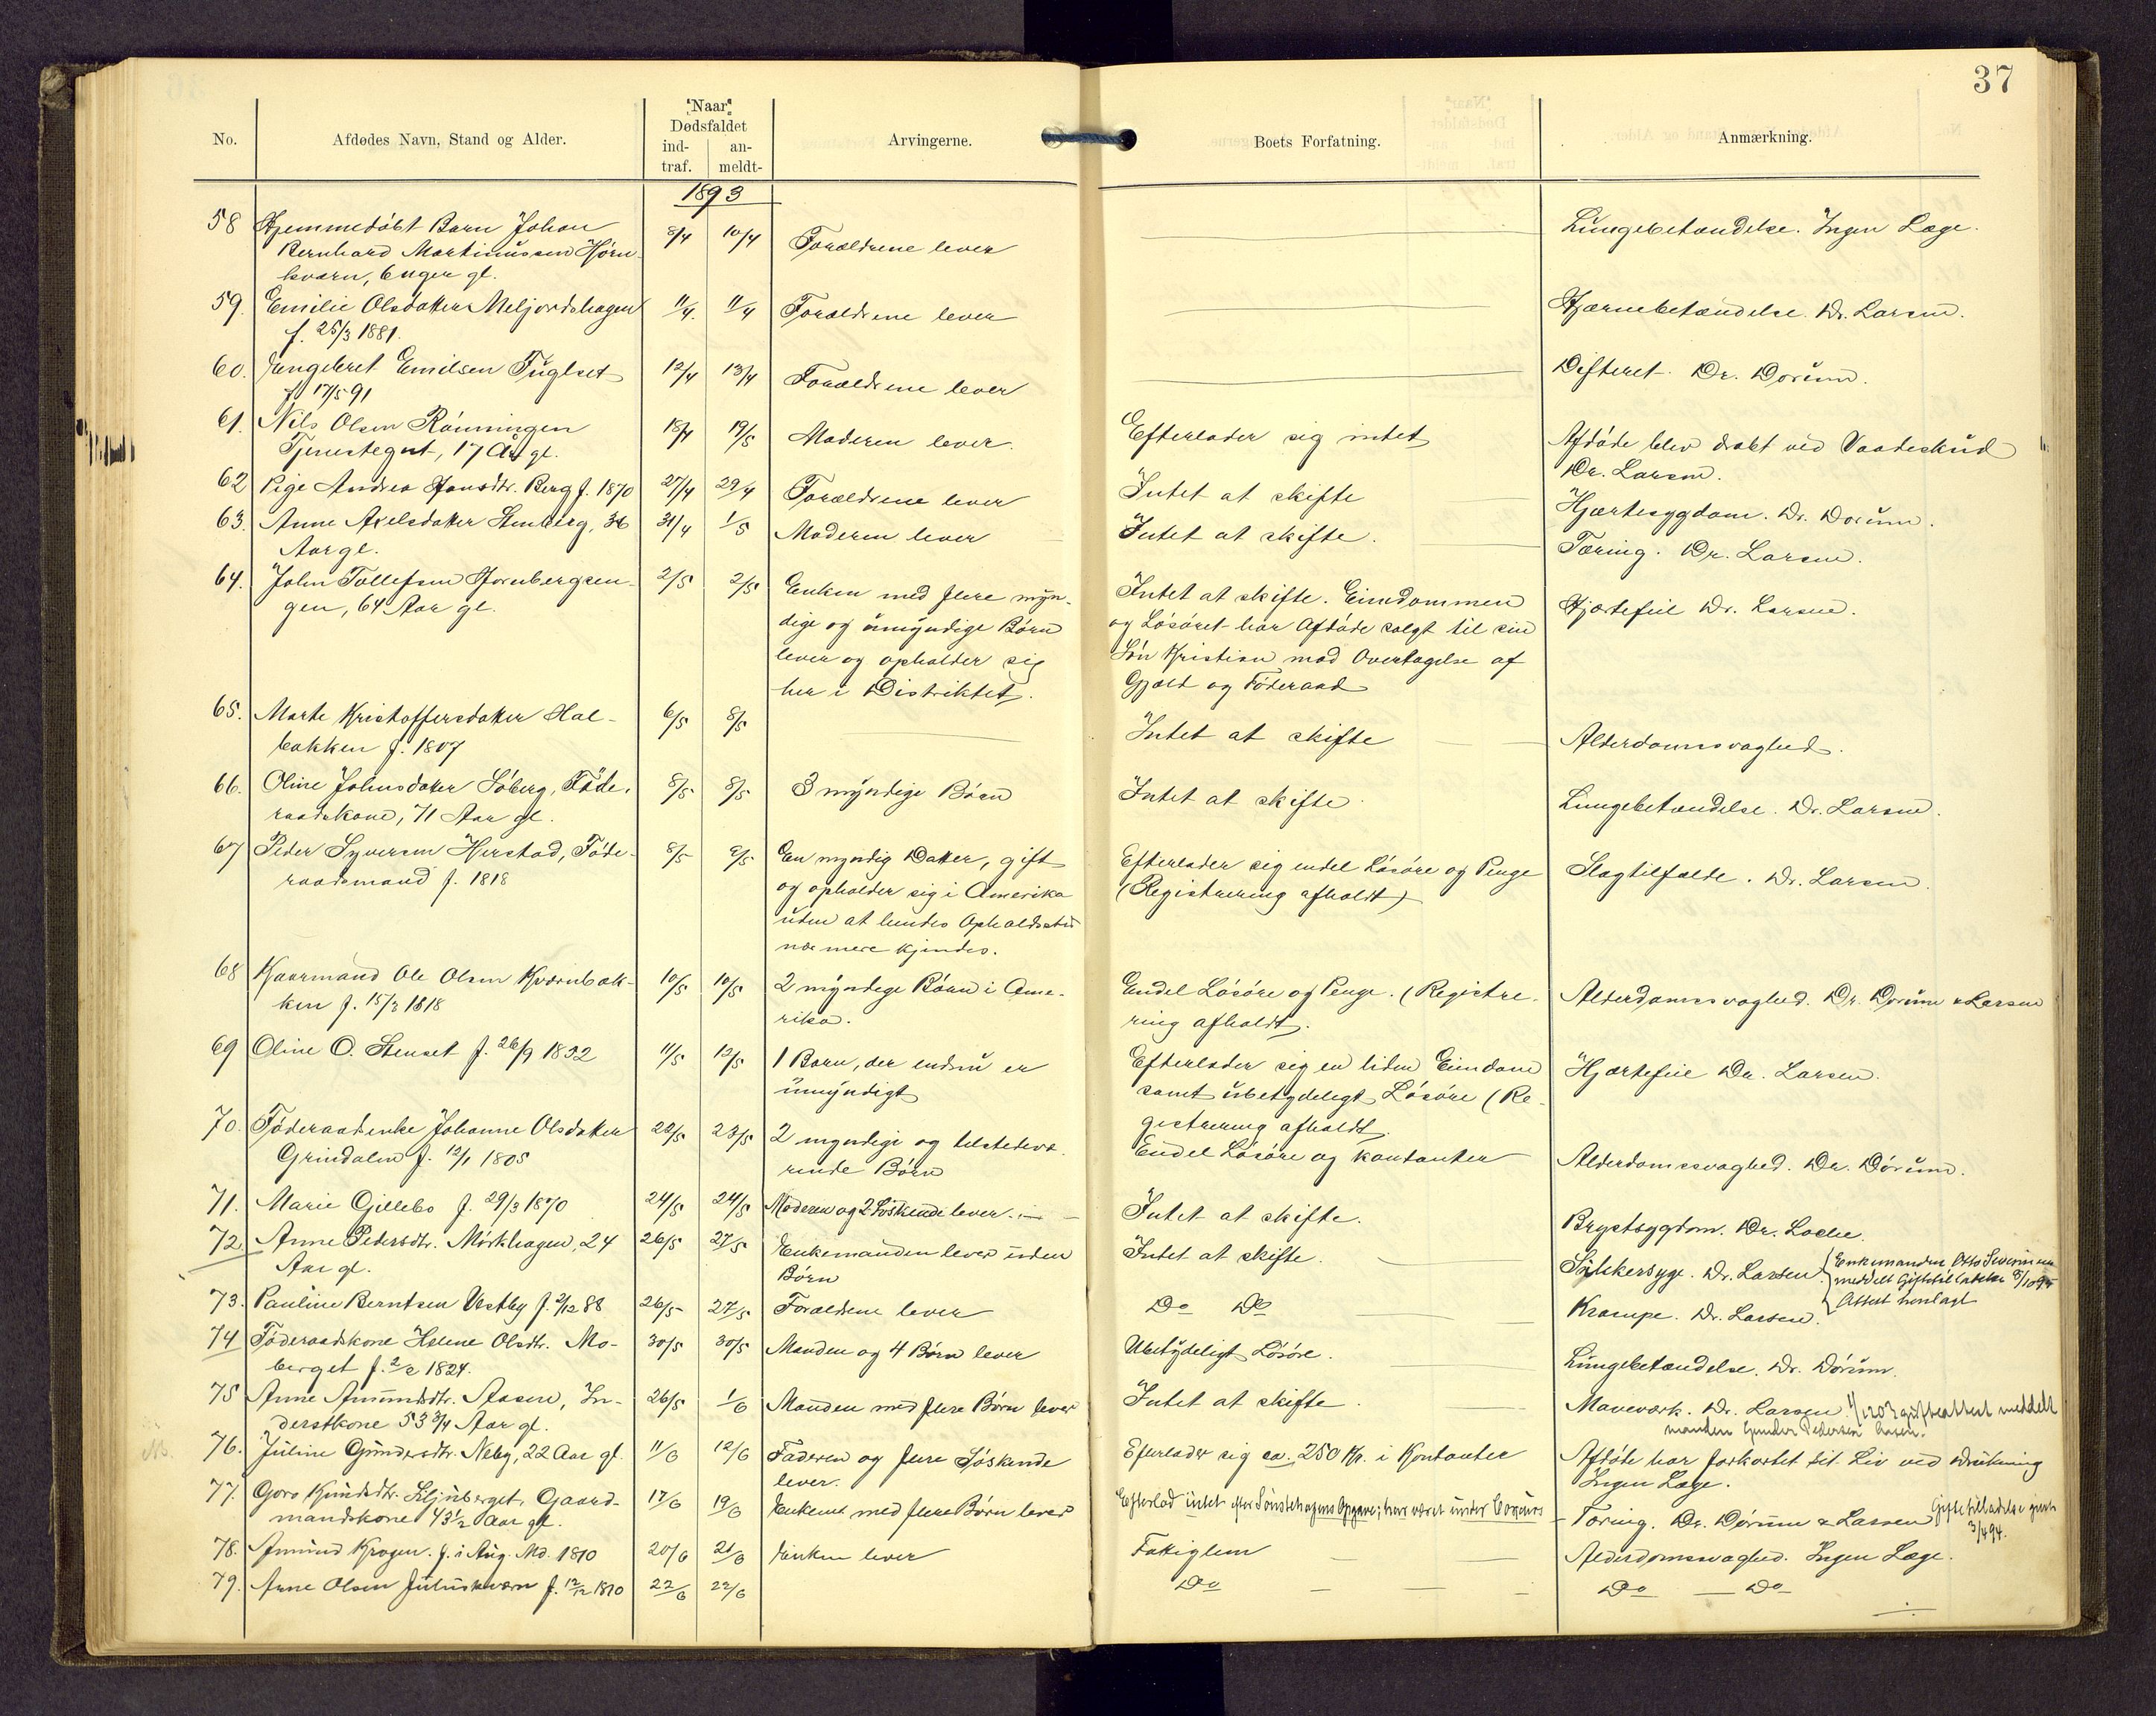 37
No. Afdødes Navn, Stand og Alder. "Naar" Dødsfaldet ind-traf. an-meldt- Arvingerne. Boets Forfatning. Anmærkning.
1893
58 Hjemmedøbt Barn Johan 8/4 10/4 Forældrene lever Lungebetændelse. Ingen Læge.
Bernhard Martinussen Hørn-
kværn, 6 uger gl.
59. Emilie Olsdatter Meljordshagen 11/4. 11/4 Forældrene lever Hjærnebetændelse. Dr. Larsen.
f. 25/3 1881.
60. Engebret Emilsen Fuglset 12/4 13/4 Forældrene lever Difteret. Dr. Dørum.
f. 17/5 91
61. Nils Olsen Rønningen 18/4 19/5 Moderen lever. Efterlader sig intet Afdøde blev dræbt ved Vaadeskud
Tjenestegut, 17 Aar gl. Dr. Larsen.
62 Pige Andrea Hansdtr. Berg f. 1870 27/4 29/4 Forældrene lever Intet at skifte Hjærtesygdom. Dr. Dørum.
63. Anne Axelsdatter Stenberg, 36 31/4 1/5 Moderen lever Intet at skifte. Tæring. Dr. Larsen.
Aar gl.
64. John Tollefsen Hornbergsen- 2/5 2/5 Enken med flere myn- Intet at skifte. Eiendommen Hjærtefeil Dr. Larsen.
gen, 64 Aar gl. dige og umyndige Børn og Løsøret har Afdøde solgt til sin
lever og opholder sig Søn Kristian mod Overtagelse af
her i Distriktet. Gjæld og Føderaad
65. Marte Kristoffersdatter Hal- 6/5 8/5 Intet at skifte Alderdomssvaghed.
bakken f. 1807
66. Oline Johnsdatter Søberg, Føde- 8/5 8/5 3 myndige Børn Intet at skifte. Lungebetændelse. Dr. Larsen.
raadskone, 71 Aar gl.
67 Peder Syversen Herstad, Føde- 8/5 8/5 En myndig Datter, gift Efterlader sig endel Løsøre og Penge Slagtilfælde. Dr. Larsen.
raadsmand f. 1818 og opholder sig i Amerika (Registrering afholdt)
uden at hendes Opholdssted
nærmere kjendes.
68 Kaarmand Ole Olsen Kværnbak- 10/5 10/5 2 myndige Børn i Ame- Endel Løsøre og Penge. (Registre- Alderdomssvaghed. Dr. Dørum & Larsen
ken f. 15/3 1818 rika. ring afholdt.
69 Oline O. Stenset f. 26/9 1832 11/5 12/5 1 Barn, der endnu er Efterlader sig en liden Eiendom Hjærtefeil Dr. Larsen.
umyndigt samt ubetydeligt Løsøre (Re-
gistrering afholdt.
70. Føderaadsenke Johanne Olsdatter 22/5 23/5 2 myndige og tilstedevæ- Endel Løsøre og kontanter Alderdomssvaghed. Dr. Dørum.
Grindalen f. 12/1 1805 rende Børn
71. Marie Gillebo f. 29/3 1870 24/5 24/5 Moderen og 2 Søskende lever. Intet at skifte. Brystsygdom. Dr. Loche.
72. Anne Pedersdtr. Mørkhagen, 24 26/5 27/5 Enkemanden lever uden Intet at skifte. Sukkersyge. Dr. Larsen. Enkemanden Otto
Aar gl. Børn meddelt Giftetilladelse
Attest henlagt
73. Pauline Berntsen Vestby f. 2/12 88 26/5 27/5 Forældrene lever Do Do Krampe. Dr. Larsen.
74 Føderaadskone Helene Olsdtr. Mo- 30/5 30/5 Manden og 4 Børn lever Ubetydeligt Løsøre. Lungebetændelse. Dr. Dørum.
berget f. 2/2 1824.
75 Anne Amundsdtr. Aasen, In- 26/5 1/6 Manden med flere Børn lever Intet at skifte. Maveværk. Dr. Larsen. giftesattest meddelt
derstkone 53 3/4 Aar gl. manden Gunder Pedersen Aasen.
76. Juline Gundersdtr. Neby, 22 Aar gl. 11/6 12/6 Faderen og flere Søskende Efterlader sig ca. 250 Kr. i Kontanter Afdøde har forkortet sit Liv ved Drukning
lever. Ingen Læge.
77. Goro Knudsdtr. Skjuberget, Gaard- 17/6 19/6 Enkem. med flere Børn lever Efterlod intet efter Sønstehagens Opgave; har været under Concurs Tæring. Dr. Dørum & Larsen Giftetilladelse given
mandskone 43 1/2 Aar gl. 3/4 94.
78. Amund Krogen. f. i Aug. Md. 1810 20/6 21/6 Enken lever Fattiglem Alderdomssvaghed. Ingen Læge.
79. Anne Olsen Juliuskværn f. 12/12 1810 22/6 22/6 Do Do Do